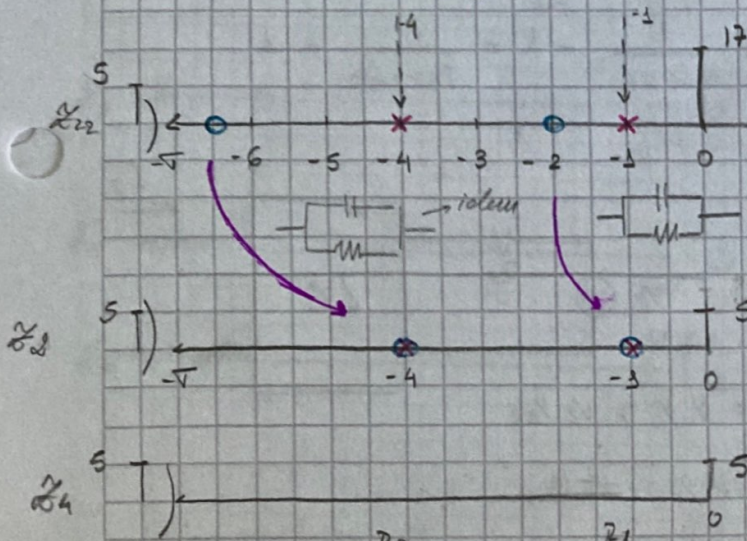 -4 -1
17
5
Z22
-∇ -6 -5 -4 -3 -2 -1 0
idem
5 5
Z2
-∇ -4 -1 0
5 5
Z4
0